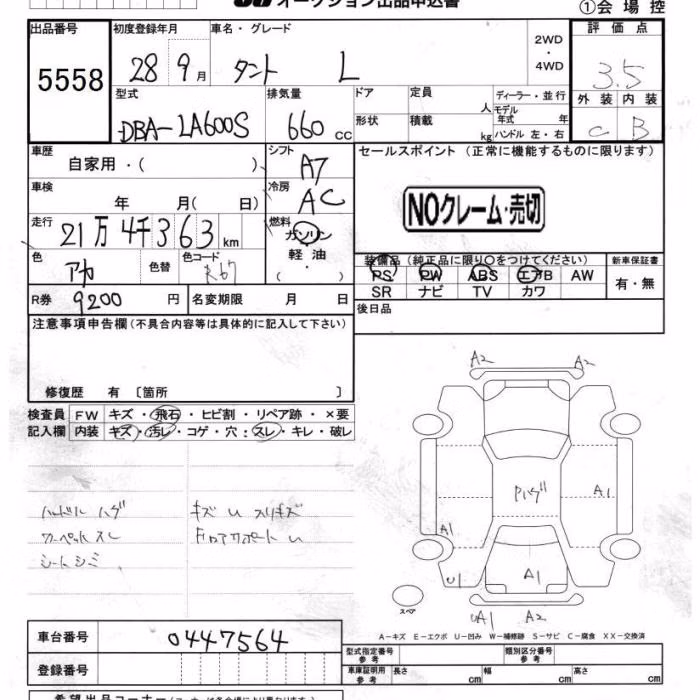 オークション出品申込書
①会場控
出品番号 初度登録年月 車名・グレード 評価点
5558 28 9月 タント L 2WD・4WD 3.5
外装 内装
C B
型式 排気量 ドア 定員 人 ディーラー・並行
DBA-LA600S 660cc 形状 積載 kg モデル年式 年
ハンドル 左・右
車歴 自家用・( ) シフト A7 セールスポイント (正常に機能するものに限ります)
車検 年 月( 日) 冷房 AC
NOクレーム・売切
走行 21万4千363km 燃料 ガソリン・軽油・( )
色 アカ 色替 色コード R67
装備品 (純正品に限り○をつけてください) 新車保証書
PS PW ABS エアB AW 有・無
SR ナビ TV カワ
R券 9200円 名変期限 月 日
後日品
注意事項申告欄(不具合内容等は具体的に記入して下さい)
修復歴 有 〔箇所 〕
検査員 FW キズ・飛石・ヒビ割・リペア跡・×要
記入欄 内装 キズ・汚レ・コゲ・穴・スレ・キレ・破レ
A2 A2
Pハゲ
A1
A1
U1
A1
A1 A2
スペア
ハンドル ハゲ キズ U スリキズ
カーペット スレ Fロアサポート U
シート シミ
A-キズ E-エクボ U-凹み W-補修跡 S-サビ C-腐食 XX-交換済
車台番号 0447564
型式指定番号 参考 類別区分番号 参考
登録番号
車庫証明用 参考 長さ cm 幅 cm 高さ cm